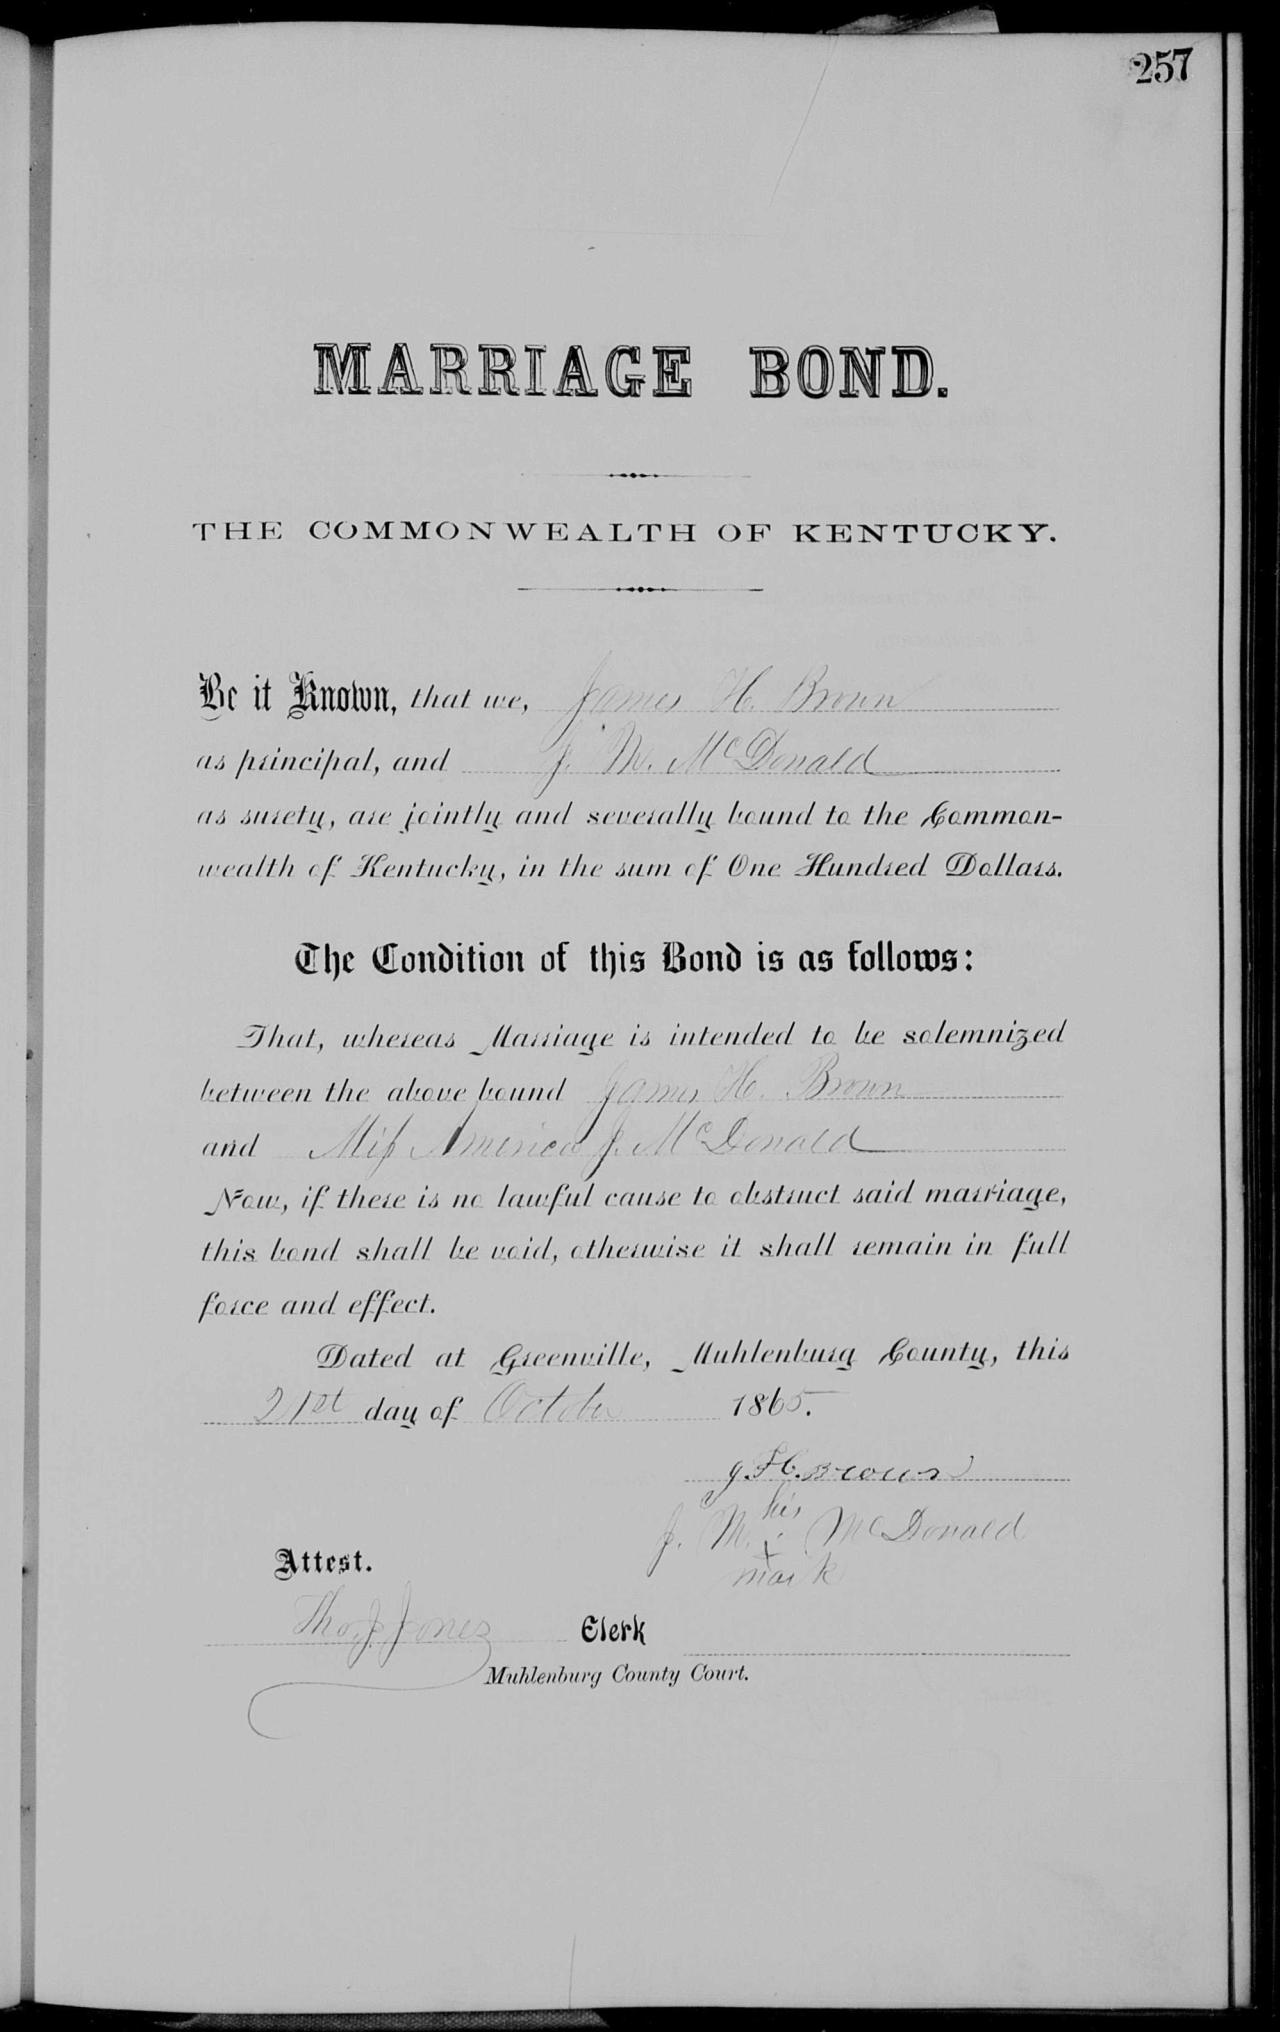 257
MARRIAGE BOND.
THE COMMONWEALTH OF KENTUCKY.
Be it Known, that we, James H. Brown
as principal, and J. M. McDonald
as surety, are jointly and severally bound to the Common-
wealth of Kentucky, in the sum of One Hundred Dollars.
The Condition of this Bond is as follows:
That, whereas Marriage is intended to be solemnized
between the above bound James H. Brown
and Miss America J. McDonald
Now, if there is no lawful cause to obstruct said marriage,
this bond shall be void, otherwise it shall remain in full
force and effect.
Dated at Greenville, Muhlenburg County, this
21st day of October 1865.
J. H. Brown
his
J. M. x McDonald
mark
Attest.
Tho. J. Jones Clerk
Muhlenburg County Court.